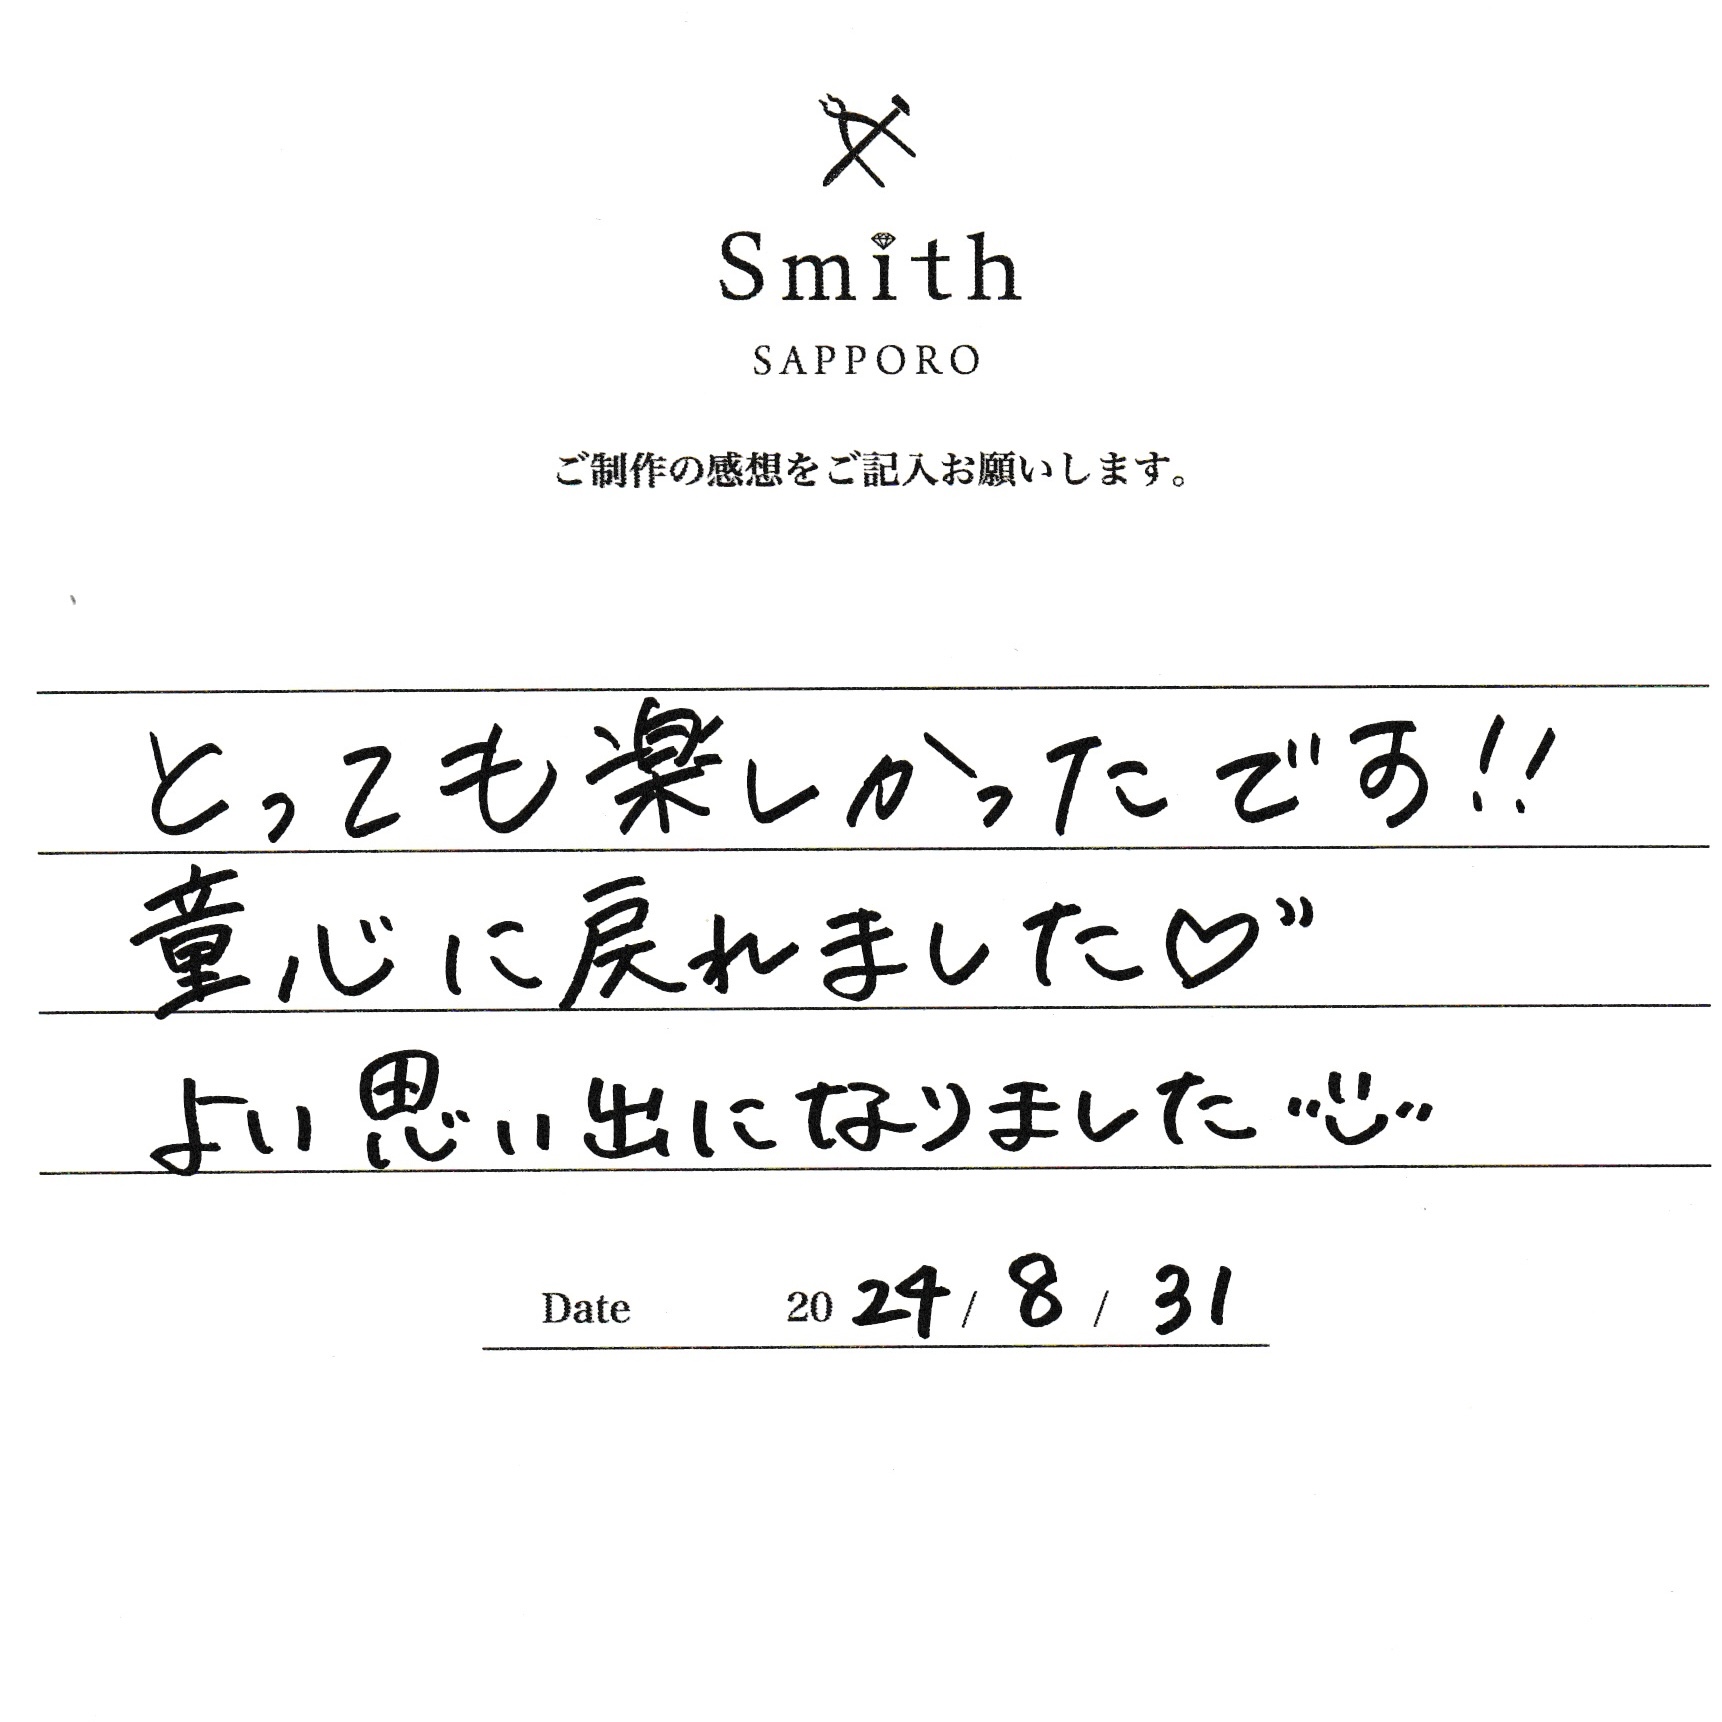 Smith
SAPPORO
ご制作の感想をご記入お願いします。
とっても楽しかったです!!
童心に戻れました♡"
よい思い出になりました
Date 2024/8/31